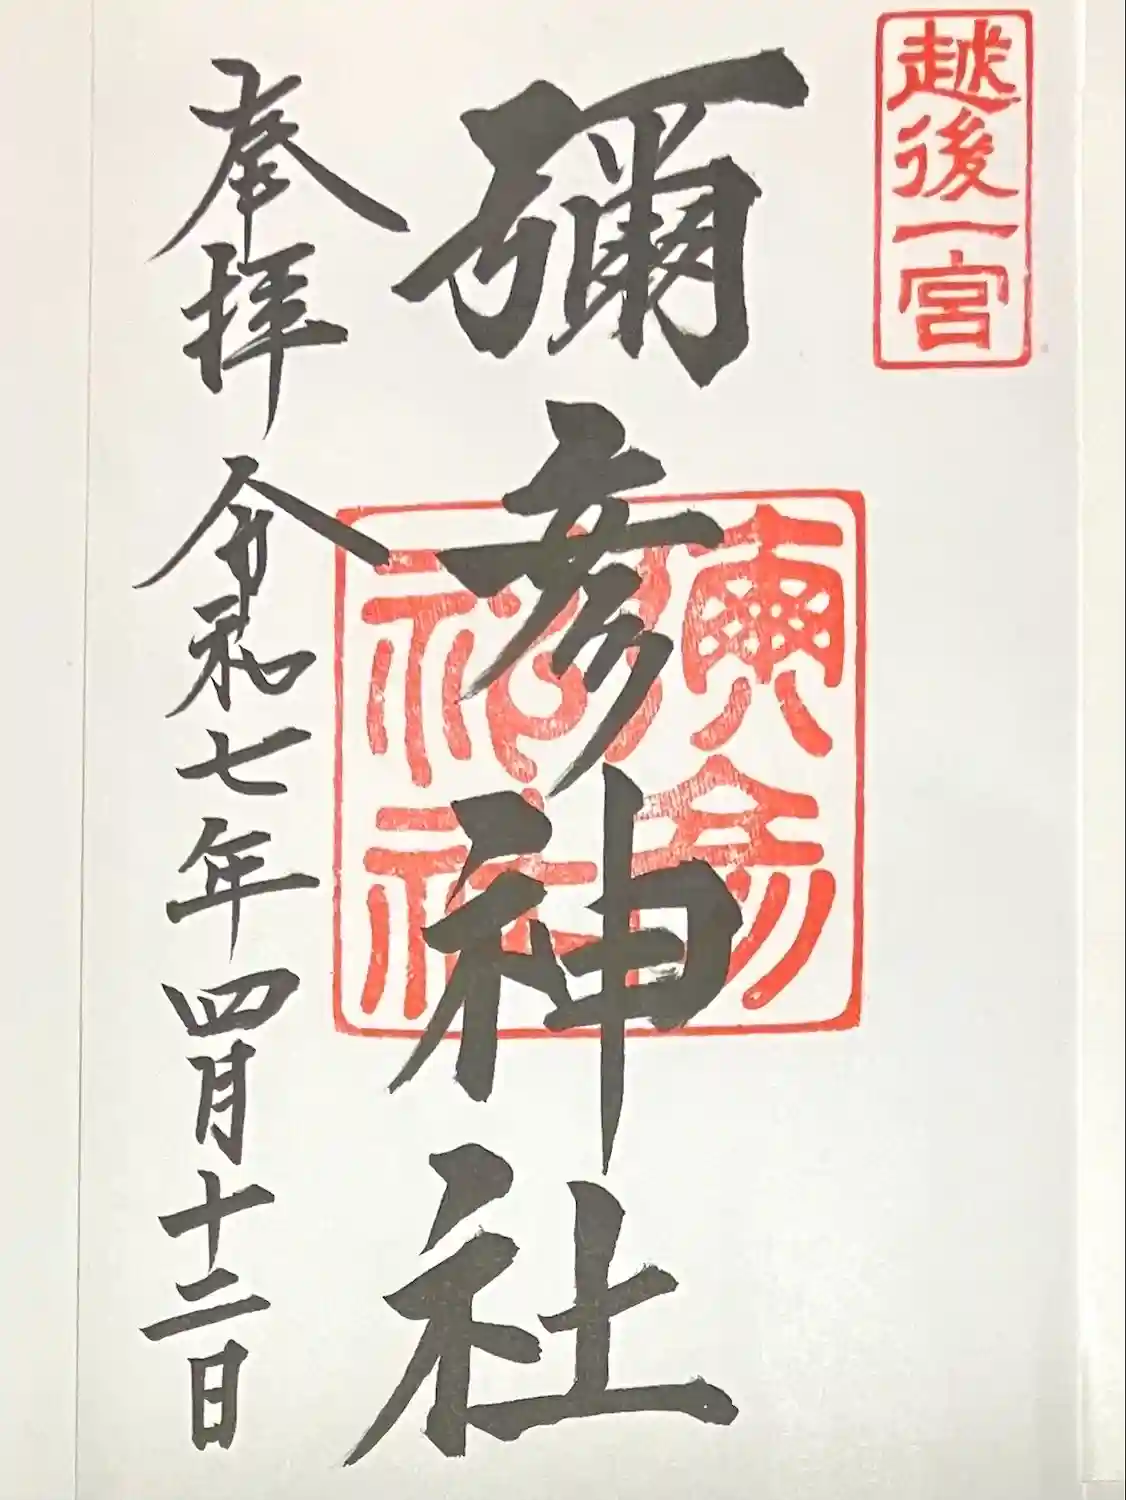 越後一宮
彌彦神社
奉拝 令和七年四月十二日